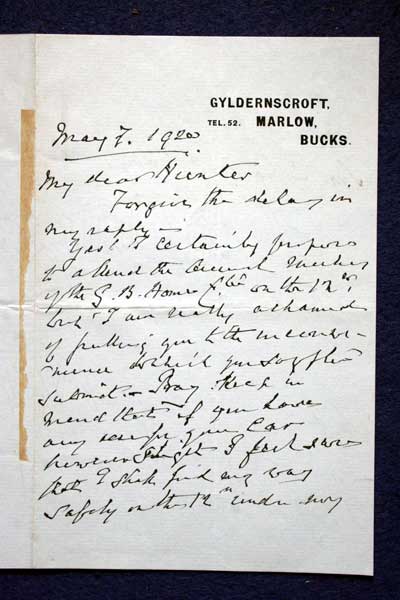 GYLDERNSCROFT,
TEL. 52. MARLOW,
BUCKS.
May 7. 1920
My dear Hunter
Forgive the delay in
my reply –
Yes! I certainly propose
to attend the Annual Meeting
of the G. B. Home on the 12th,
but I am really ashamed
of putting you to the inconve-
nience which you so often
submit – Pray keep in
mind that if you have
any use for your Car
however slight I feel sure
that I shall find my way
safely on the 12th under my